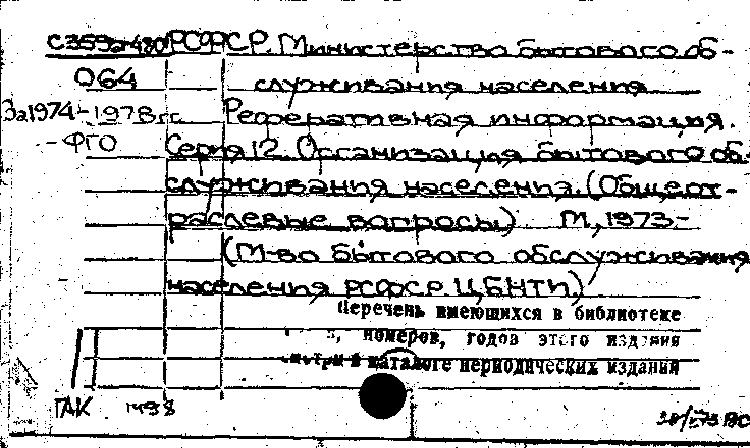 РСФСР. Министерство бытового об-
064 служивания населения
За 1974-1978гг. Реферативная информация.
-ФГО Серия 12. Организация бытового об-
служивания населения. (Общеот-
раслевые вопросы) М., 1973-
(М-во бытового обслуживания
населения РСФСР. ЦБНТИ)
Перечень имеющихся в библиотеке
номеров, годов этого издания
смотри в каталоге периодических изданий
ГАК 1498